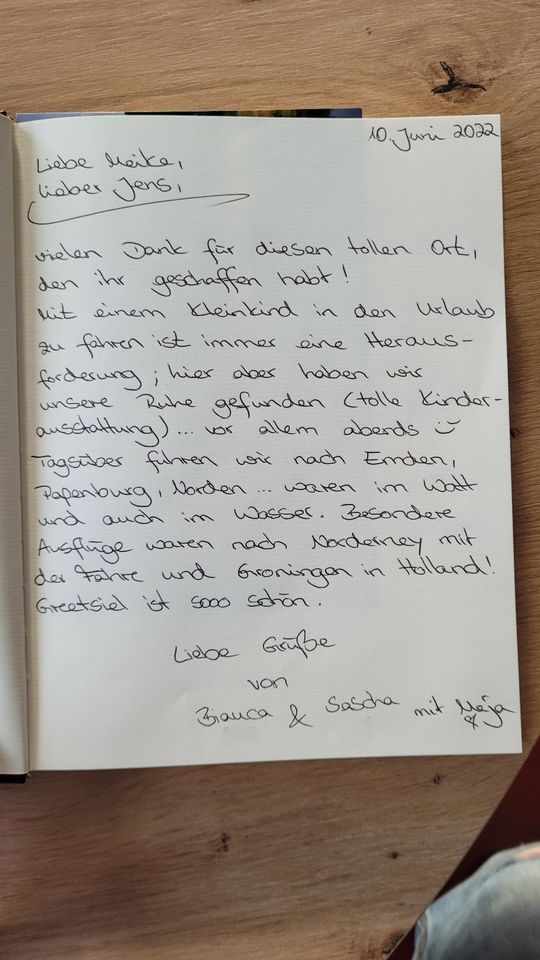 10. Juni 2022
Liebe Meike,
lieber Jens,
vielen Dank für diesen tollen Ort,
den ihr geschaffen habt!
Mit einem Kleinkind in den Urlaub
zu fahren ist immer eine Heraus-
forderung; hier aber haben wir
unsere Ruhe gefunden (tolle Kinder-
ausstattung)... vor allem abends
Tagsüber fuhren wir nach Emden,
Papenburg, Norden ... waren im Watt
und auch im Wasser. Besondere
Ausflüge waren nach Norderney mit
der Fähre und Groningen in Holland!
Greetsiel ist sooo schön.
Liebe Grüße
von
Bianca & Sascha mit Maja